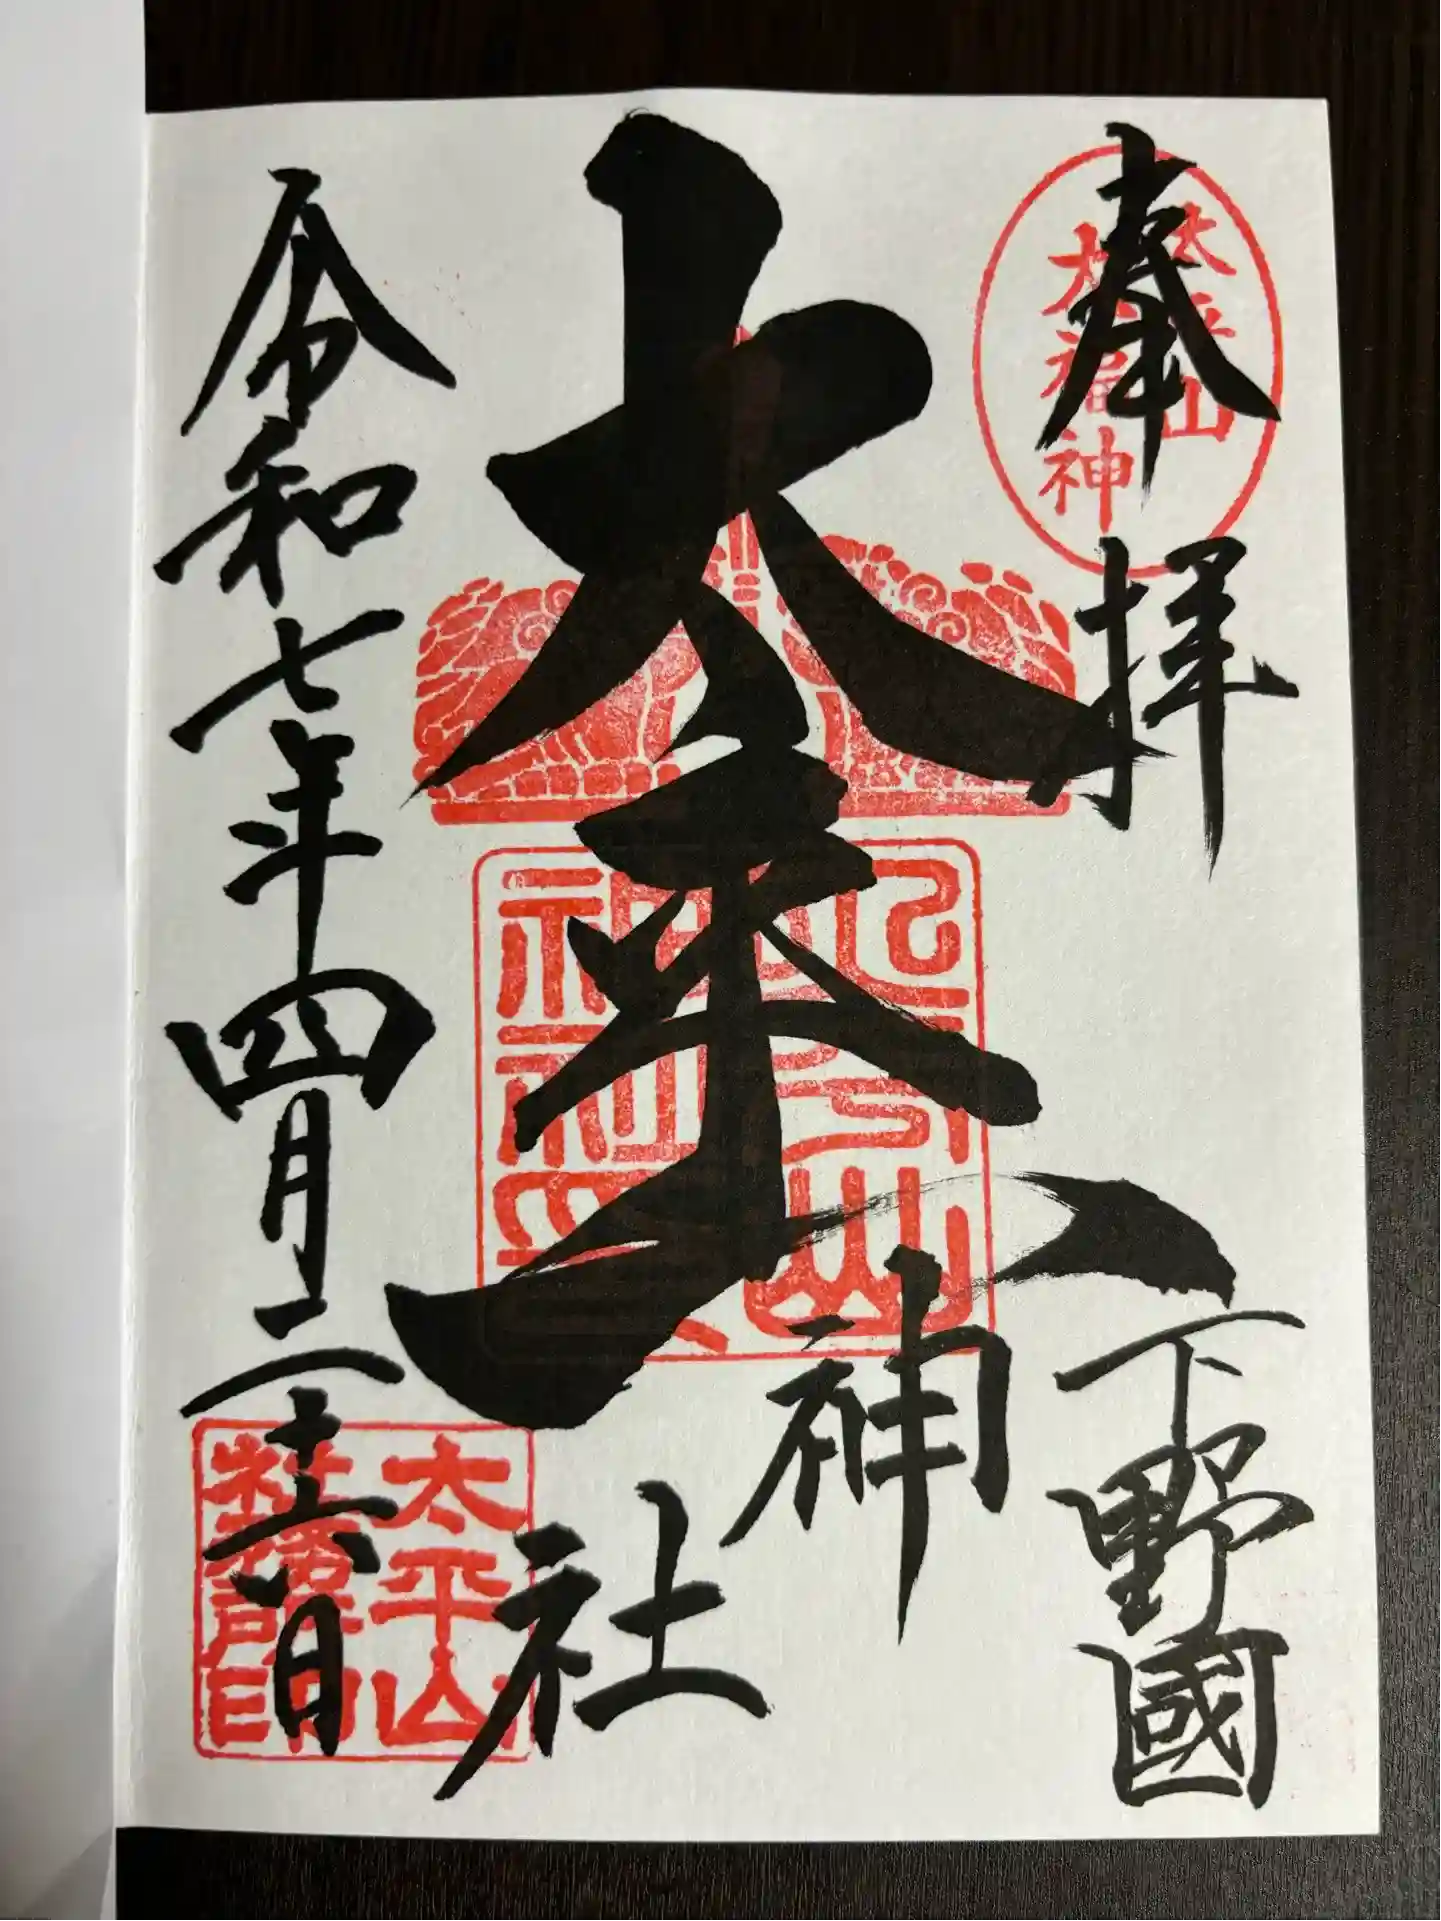 奉拝
下野國
太平山
神社
令和七年四月二十六日
太平山
大福神
太平山
社務所印